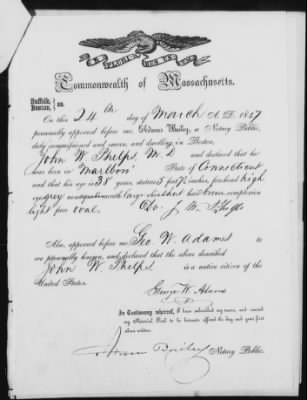 E PLURIBUS UNUM
Commonwealth of Massachusetts.
Suffolk,
Boston, } ss.
On this 24th day of March A.D. 1857
personally appeared before me, Adams Bailey, a Notary Public,
duly commissioned and sworn, and dwelling in Boston,
John W. Phelps, M.D and declared that he
was born in Marlboro State of Connecticut
and that his age is 38 years, stature 5 feet 7½ inches, forehead high
eyes grey mouth large chin hair brown complexion
light face oval. John W. Phelps
Also, appeared before me Geo. W. Adams to
me personally known, and declared that the above described
John W. Phelps. is a native citizen of the
United States.
George W. Adams
In Testimony whereof, I have subscribed my name, and caused
my Notarial Seal to be hereunto affixed the day and year first
above written.
Adams Bailey Notary Public.